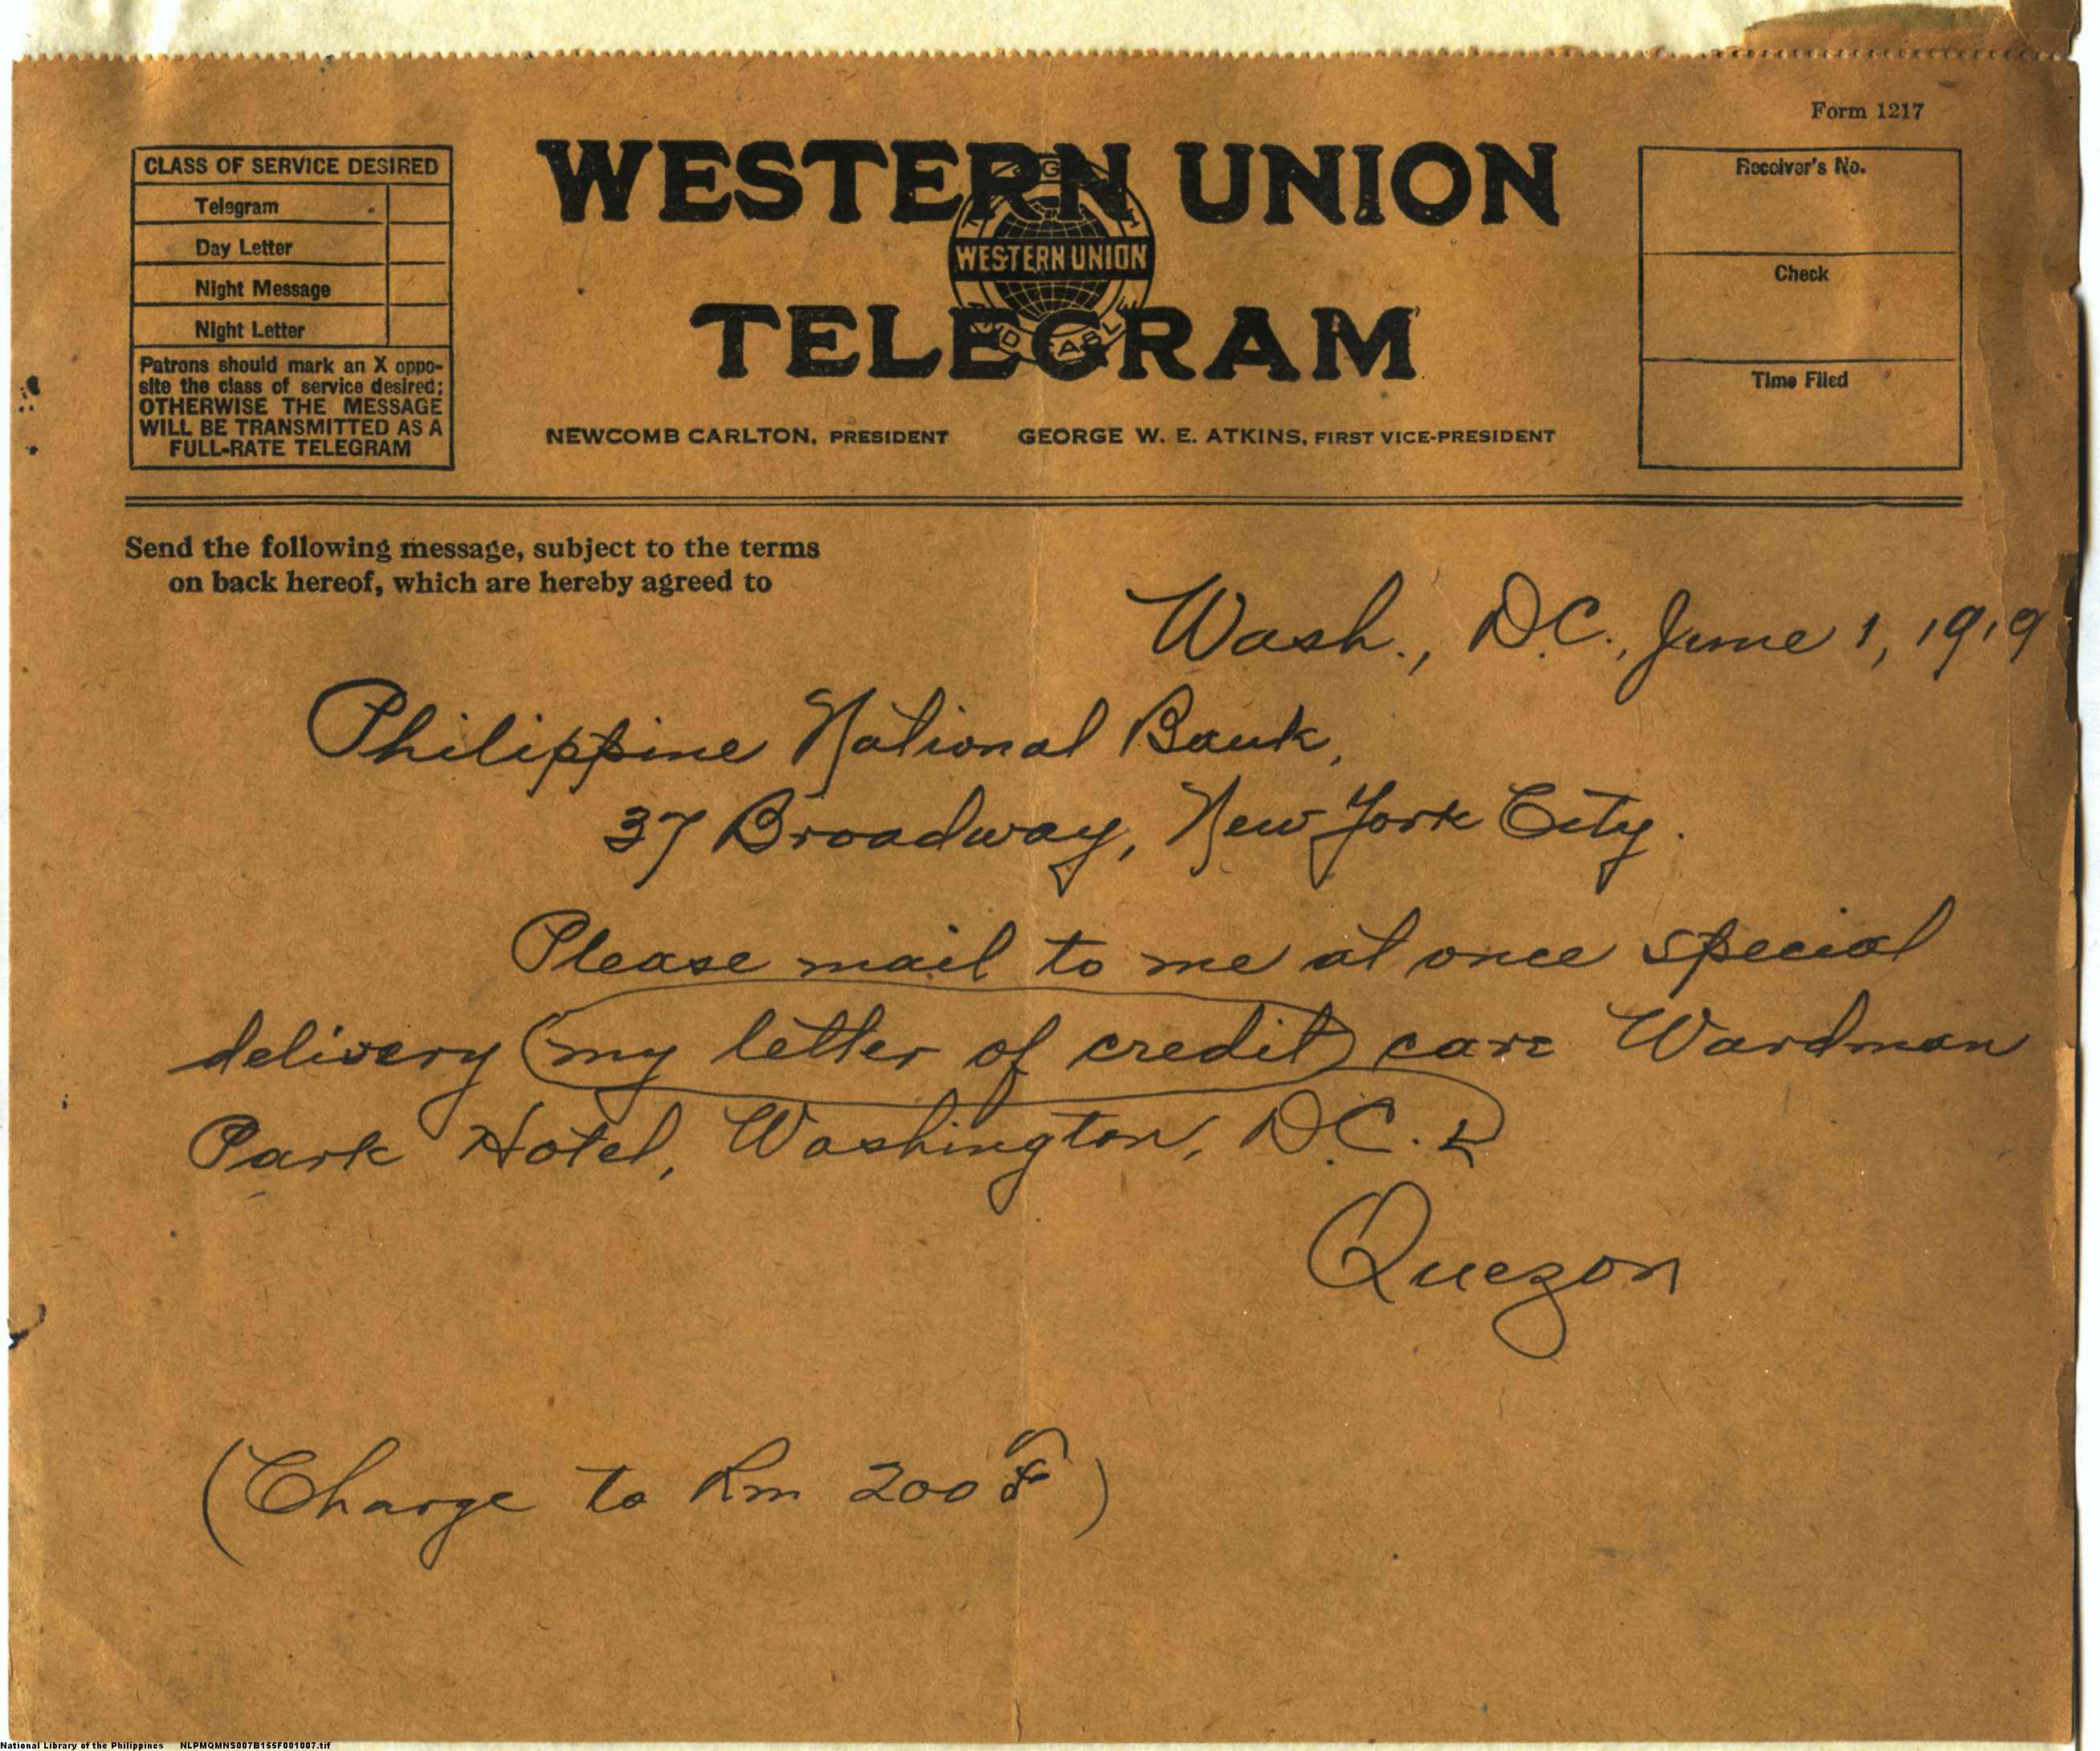 Form 1217
CLASS OF SERVICE DESIRED
Telegram
Day Letter
Night Message
Night Letter
Patrons should mark an X oppo-
site the class of service desired;
OTHERWISE THE MESSAGE
WILL BE TRANSMITTED AS A
FULL-RATE TELEGRAM
WESTERN UNION
WESTERN UNION
TELEGRAM
NEWCOMB CARLTON, PRESIDENT GEORGE W. E. ATKINS, FIRST VICE-PRESIDENT
Receiver's No.
Check
Time Filed
Send the following message, subject to the terms
on back hereof, which are hereby agreed to
Wash., D.C., June 1, 1919
Philippine National Bank,
37 Broadway, New York City.
Please mail to me at once special
delivery my letter of credit care Wardman
Park Hotel, Washington, D.C.
Quezon
(Charge to Rm 200 F)
National Library of the Philippines NLPMQMNS007B155F001007.tif